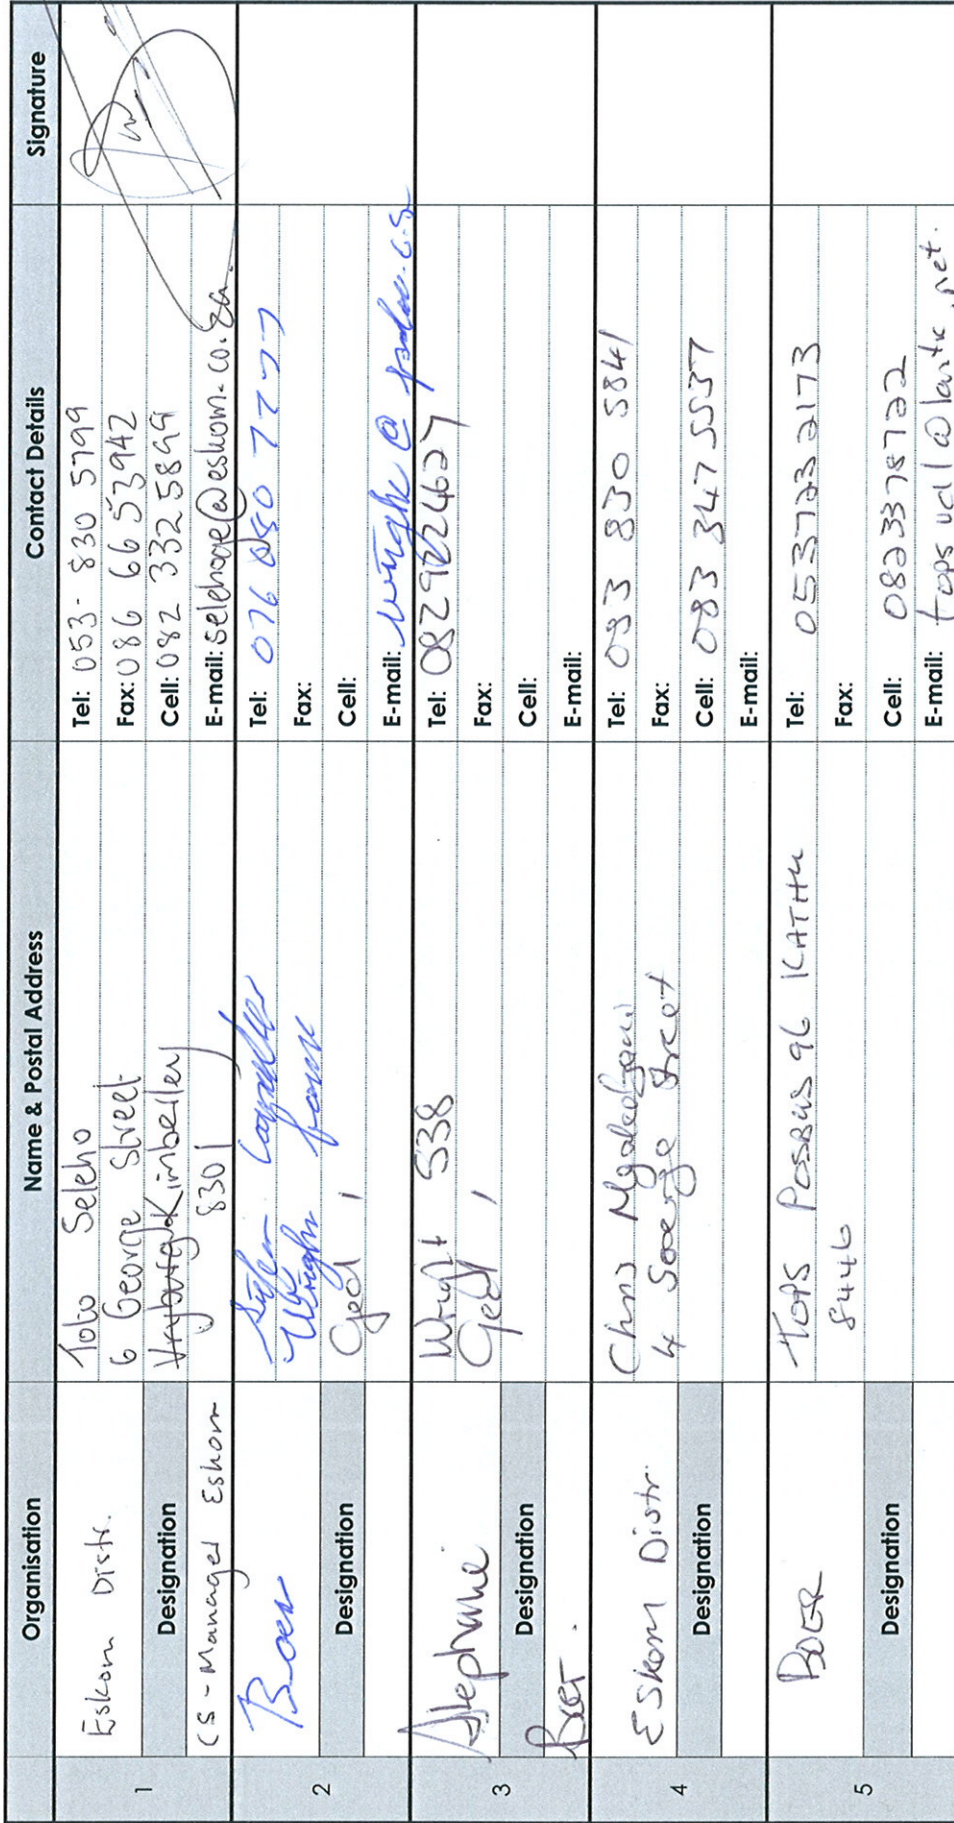 Organisation
Name & Postal Address
Contact Details
Signature
1
Eskom Distr.
Designation
CS - Manager Eskom
Seleho
6 George Street
Vryburg Kimberley
8301
Tel: 053 - 830 5799
Fax: 086 6653942
Cell: 082 332 5899
E-mail: selehoge@eskom.co.za
2
Boer
Designation
Wright
Tel: 076
Fax:
Cell:
E-mail:
3
Stephanie
Designation
Boer.
Wright 538
Tel: 0829222462
Fax:
Cell:
E-mail:
4
Eskom Distr.
Designation
Chris
4 George Street
Tel: 053 830 5841
Fax:
Cell: 083 347 5537
E-mail:
5
BOER
Designation
TOPS POSBUS 96 KATHU
8446
Tel: 0537232173
Fax:
Cell: 0823378722
E-mail: topsvcl@lantic.net.